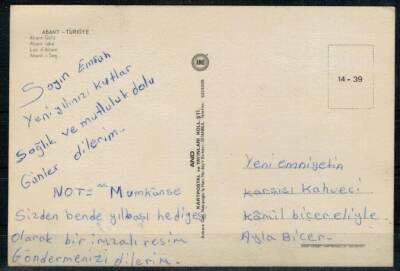 ABANT - TÜRKİYE
Abant Gölü
Abant lake
Lac d'Abant
Abant - See
Sayın Emrah
Yeni yılınızı kutlar
Sağlık ve mutluluk dolu
Günler dilerim.
NOT= Mumkünse
Sizden bende yılbaşı hediyesi
olarak bir imzalı resim
Göndermenizi dilerim.
AND
KARTPOSTAL ve YAYINLARI KOLL. ŞTİ.
14 - 39
Yeni emniyetin
karşısı Kahveci
kâmil biçer eliyle
Ayla Biçer